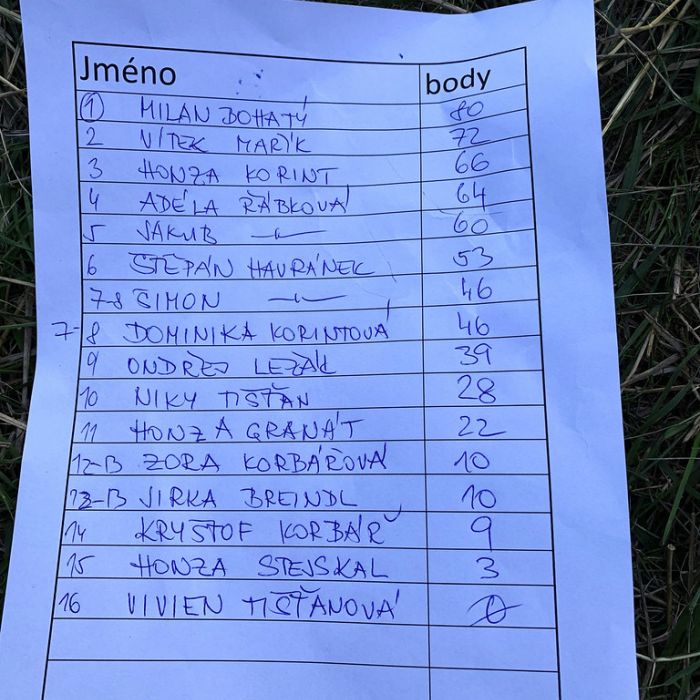 Jméno body
1 MILAN BOHATÝ 80
2 VÍTEK MAŘÍK 72
3 HONZA KORINT 66
4 ADÉLA ŘÁBKOVÁ 64
5 JAKUB —〃— 60
6 ŠTĚPÁN HAVRÁNEK 53
7-8 ŠIMON —〃— 46
7-8 DOMINIKA KORINTOVÁ 46
9 ONDŘEJ LEŽÁK 39
10 NIKY TIŠŤAN 28
11 HONZA GRANÁT 22
12-13 ZORA KORBÁŘOVÁ 10
12-13 JIRKA BREINDL 10
14 KRYŠTOF KORBÁŘ 9
15 HONZA STEJSKAL 3
16 VIVIEN TIŠŤANOVÁ 0